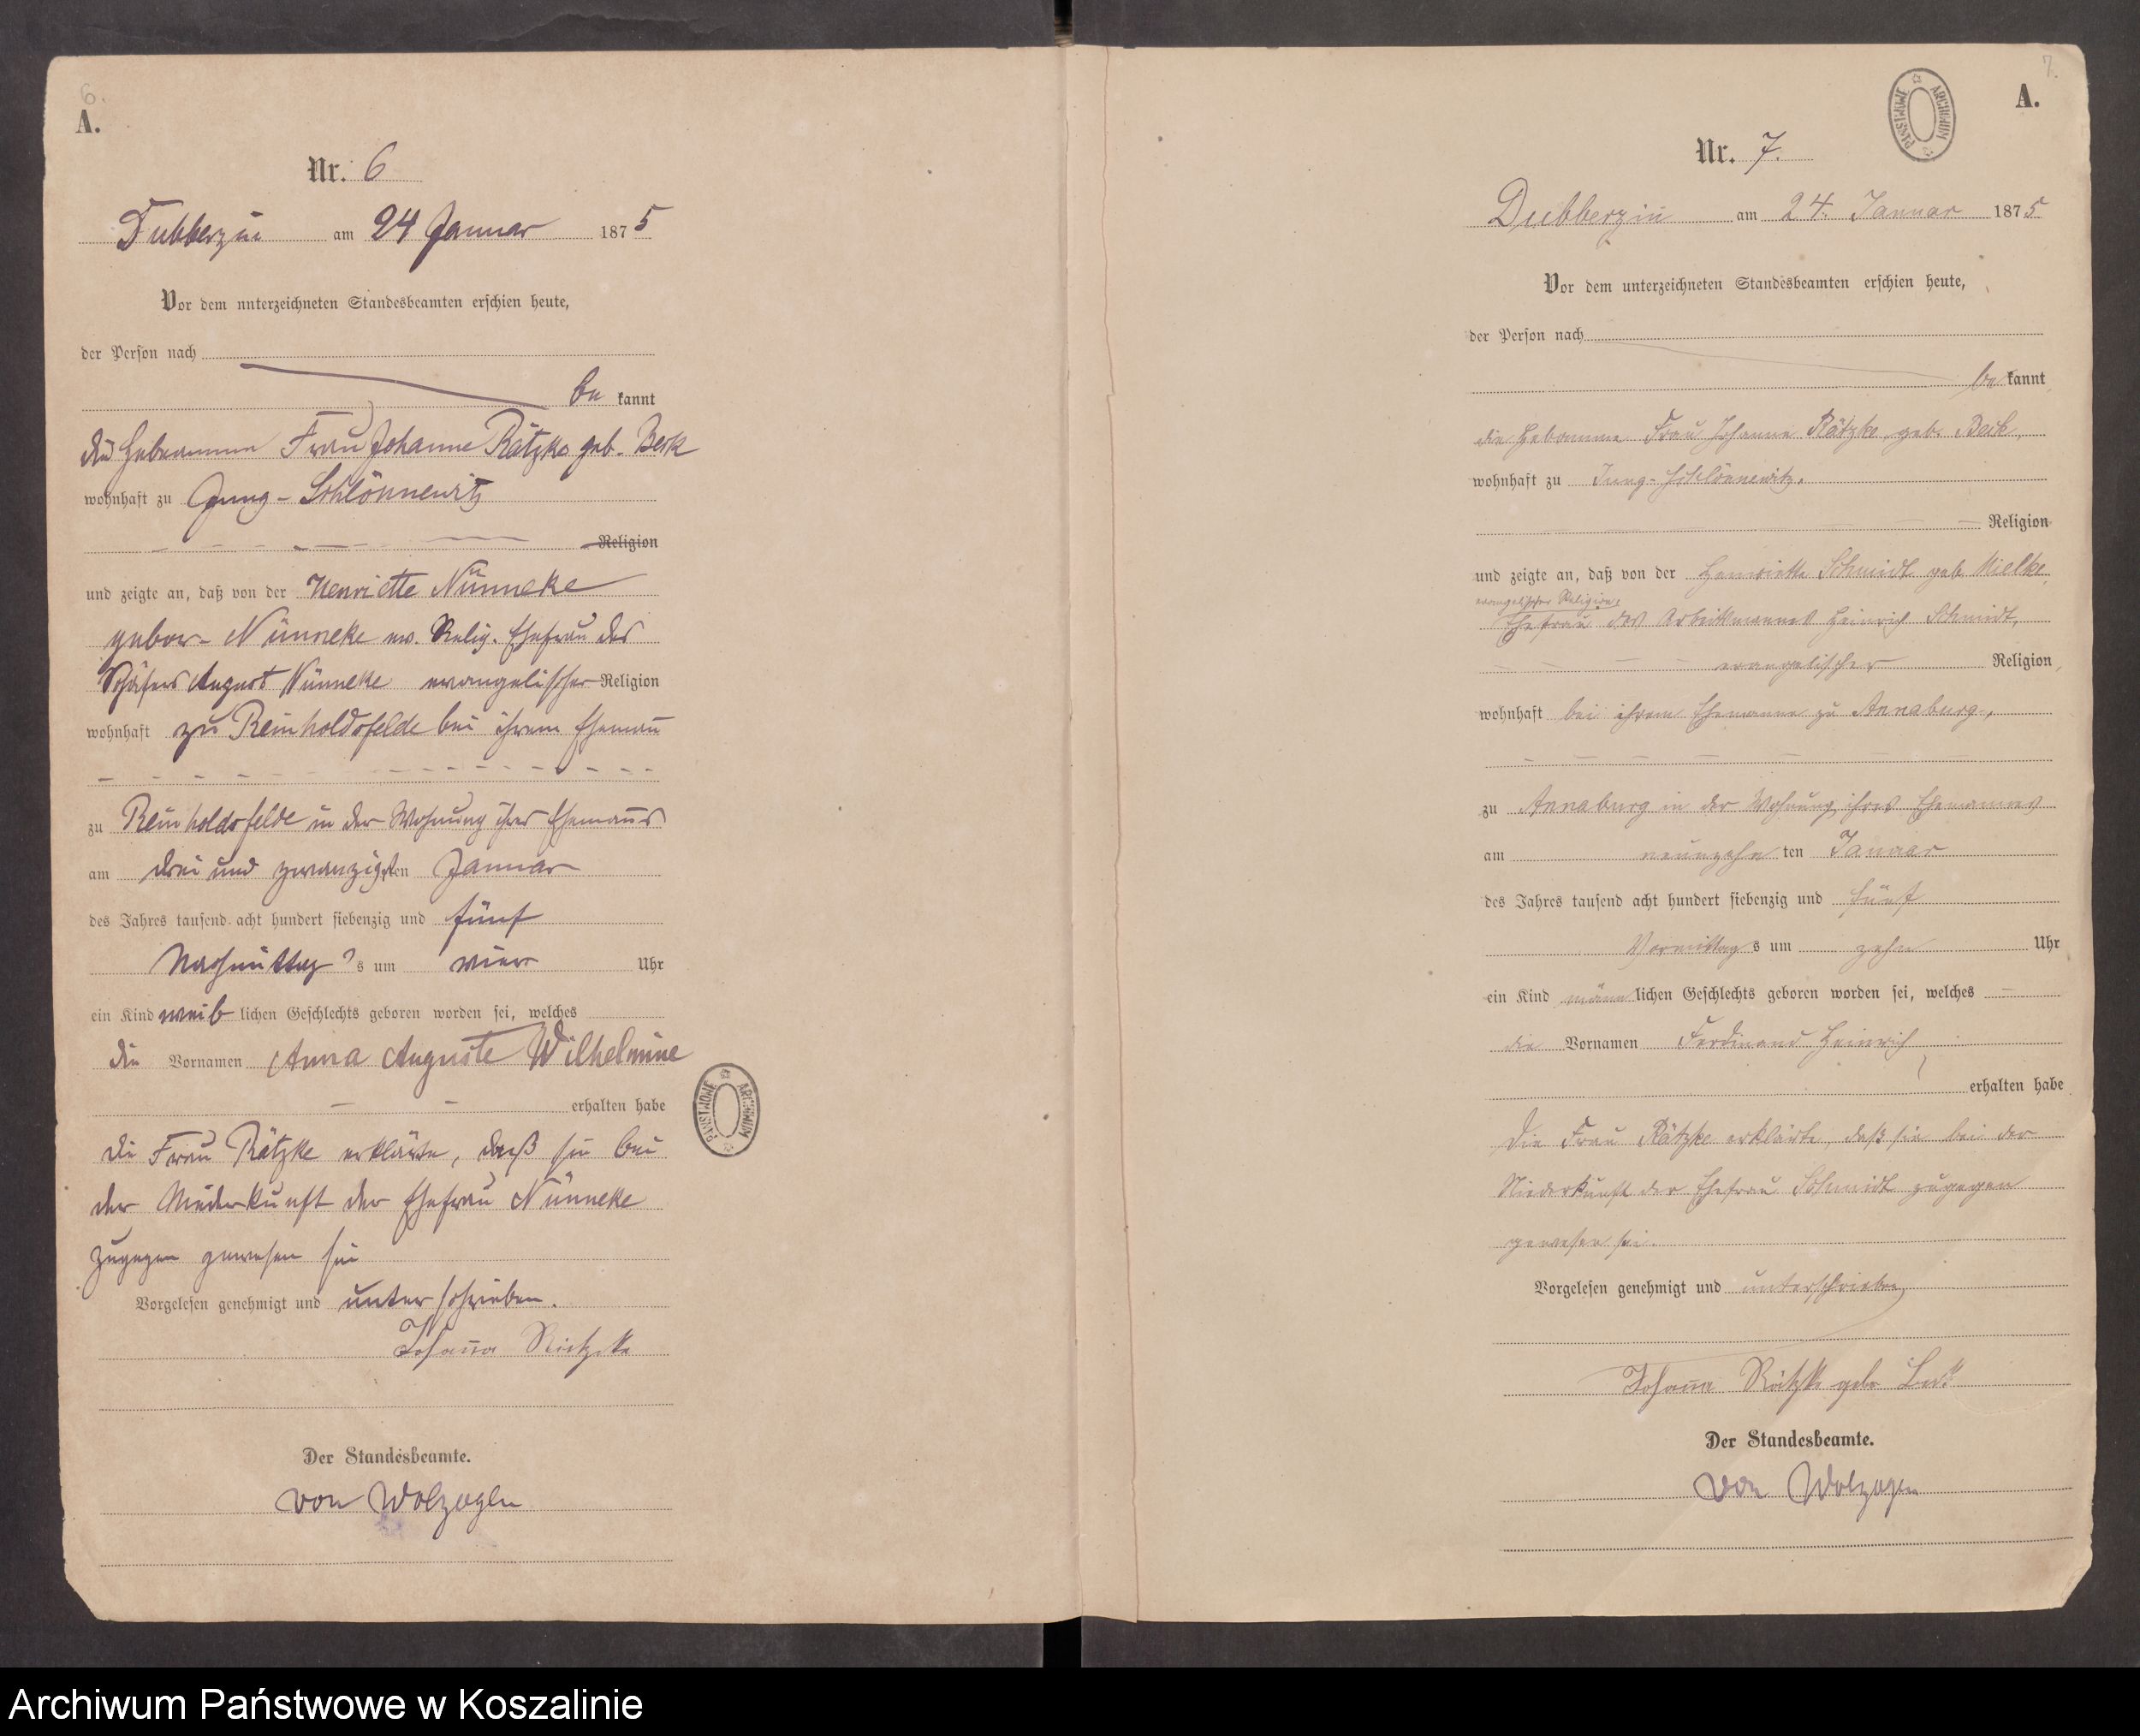 6.
A.
Nr. 6
Dubberzin am 24 Januar 1875
Vor dem unterzeichneten Standesbeamten erschien heute,
der Person nach
be kannt
die Hebamme Frau Johanne Rätzke geb. Beck
wohnhaft zu Jung-Schlönnewitz
Religion
und zeigte an, daß von der Henriette Nünneke
gebor- Nünneke ev. Relig. Ehefrau des
Schäfers August Nünneke evangelischer Religion
wohnhaft zu Reinholdsfelde bei ihrem Ehemañ
zu Reinholdsfelde in der Wohnung ihres Ehemañes
am drei und zwanzigsten Januar
des Jahres tausend acht hundert siebenzig und fünf
Nachmittag s um vier Uhr
ein Kind weib lichen Geschlechts geboren worden sei, welches
die Vornamen Anna Auguste Wilhelmine
erhalten habe
die Frau Rätzke erklärte, daß sie bei
der Niederkunft der Ehefrau Nünneke
zugegen gewesen sei
Vorgelesen genehmigt und unterschrieben.
Johaña Rätzke
Der Standesbeamte.
von Wolzogen
PAŃSTWOWE ARCHIWUM
7.
A.
PAŃSTWOWE ARCHIWUM
Nr. 7.
Dubberzin am 24. Januar 1875
Vor dem unterzeichneten Standesbeamten erschien heute,
der Person nach
be kannt
die Hebamme Frau Johanne Rätzke, geb. Beck,
wohnhaft zu Jung-Schlönnewitz.
Religion
und zeigte an, daß von der Henriette Schmidt geb. Mielke,
evangelischer Religion,
Ehefrau des Arbeitsmannes Heinrich Schmidt,
evangelischer Religion,
wohnhaft bei ihrem Ehemanne zu Annaburg,
zu Annaburg in der Wohnung ihres Ehemannes
am neunzehn ten Januar
des Jahres tausend acht hundert siebenzig und fünf
Vormittag s um zehn Uhr
ein Kind männ lichen Geschlechts geboren worden sei, welches
die Vornamen Ferdinand Heinrich
erhalten habe
Die Frau Rätzke erklärte, daß sie bei der
Niederkunft der Ehefrau Schmidt zugegen
gewesen sei.
Vorgelesen genehmigt und unterschrieben
Johaña Rätzke geb. Beck
Der Standesbeamte.
von Wolzogen
Archiwum Państwowe w Koszalinie